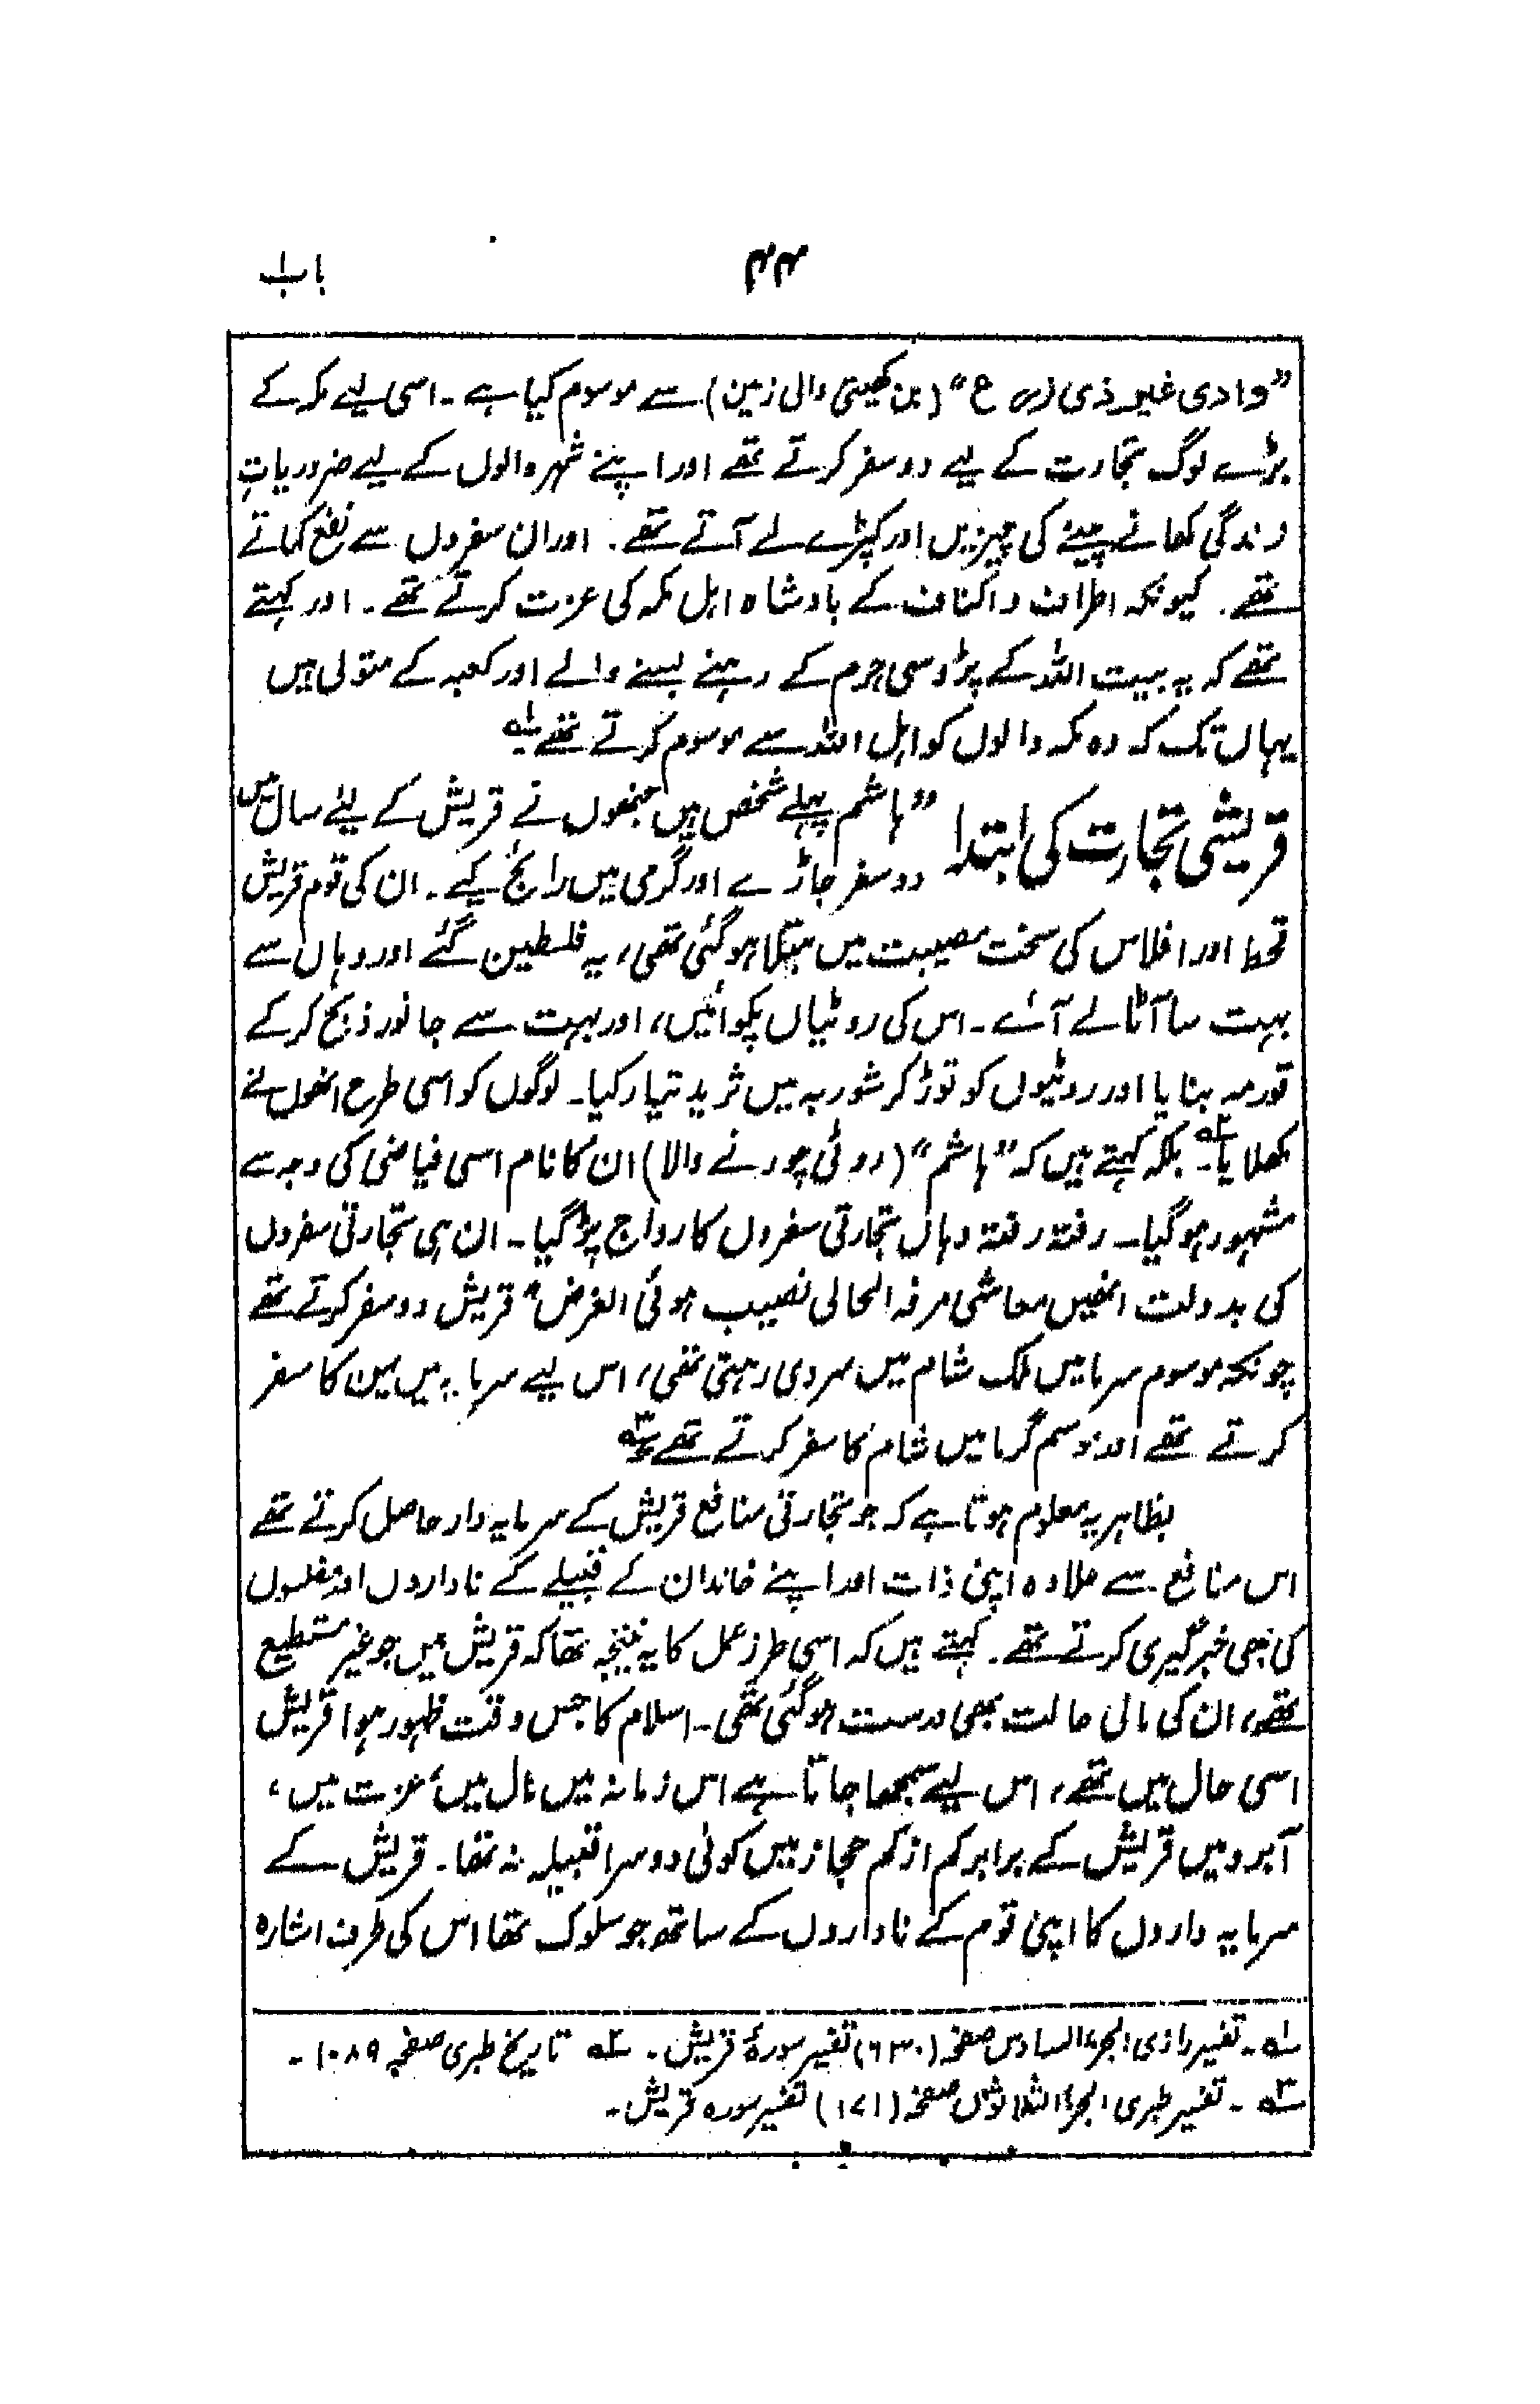 باب ۱
۴۴
”وادی غیر ذی زرع“ (بن کھیتی والی زمین) سے موسوم کیا ہے۔ اسی لیے مکہ کے
بڑے لوگ تجارت کے لیے دو سفر کرتے تھے اور اپنے شہر والوں کے لیے ضروریاتِ
زندگی کھانے پینے کی چیزیں اور کپڑے لے آتے تھے۔ اور ان سفروں سے نفع کماتے
تھے۔ کیونکہ اطراف و اکناف کے بادشاہ اہل مکہ کی عزت کرتے تھے۔ اور کہتے
تھے کہ یہ بیت اللہ کے پڑوسی حرم کے رہنے بسنے والے اور کعبہ کے متولی ہیں
یہاں تک کہ وہ مکہ والوں کو اہل اللہ سے موسوم کرتے تھے ۱؎
قریشی تجارت کی ابتدا
”ہاشم پہلے شخص ہیں جنھوں نے قریش کے لیے سال میں
دو سفر جاڑے اور گرمی میں رائج کیے۔ ان کی قوم قریش
قحط اور افلاس کی سخت مصیبت میں مبتلا ہوگئی تھی، یہ فلسطین گئے اور وہاں سے
بہت سا آٹا لے آئے۔ اس کی روٹیاں پکوائیں، اور بہت سے جانور ذبح کرکے
قورمہ بنایا اور روٹیوں کو توڑ کر شوربہ میں ثرید تیار کیا۔ لوگوں کو اسی طرح انھوں نے
کھلایا ۲؎ بلکہ کہتے ہیں کہ ”ہاشم“ (روٹی چورنے والا) ان کا نام اسی فیاضی کی وجہ سے
مشہور ہوگیا۔ رفتہ رفتہ وہاں تجارتی سفروں کا رواج پڑگیا۔ ان ہی تجارتی سفروں
کی بدولت انھیں معاشی مرفہ الحالی نصیب ہوئی الغرض ”قریش دو سفر کرتے تھے
چونکہ موسوم سرما میں ملک شام میں سردی رہتی تھی، اس لیے سرما یہ میں یمن کا سفر
کرتے تھے اور موسم گرما میں شام کا سفر کرتے تھے ۳؎
بظاہر یہ معلوم ہوتا ہے کہ جو تجارتی منافع قریش کے سرمایہ دار حاصل کرتے تھے
اس منافع سے علاوہ اپنی ذات اور اپنے خاندان کے قبیلے کے ناداروں اور مفلسوں
کی بھی خبرگیری کرتے تھے۔ کہتے ہیں کہ اسی طرز عمل کا یہ نتیجہ تھا کہ قریش میں جو غیر مستطیع
تھے، ان کی مالی حالت بھی درست ہوگئی تھی۔ اسلام کا جس وقت ظہور ہوا قریش
اسی حال میں تھے، اس لیے سمجھا جاتا ہے اس زمانہ میں مال میں، عزت میں،
آبرو میں قریش کے برابر کم از کم حجاز میں کوئی دوسرا قبیلہ نہ تھا۔ قریش کے
سرمایہ داروں کا اپنی قوم کے ناداروں کے ساتھ جو سلوک تھا اس کی طرف اشارہ
۱؎۔ تفسیر رازی الجزء السادس صفحہ (۶۳۰) تفسیر سورۂ قریش۔ ۲؎ تاریخ طبری صفحہ ۱۰۸۹۔
۳؎۔ تفسیر طبری الجزء الثلاثون صفحہ (۱۷۱) تفسیر سورہ قریش۔